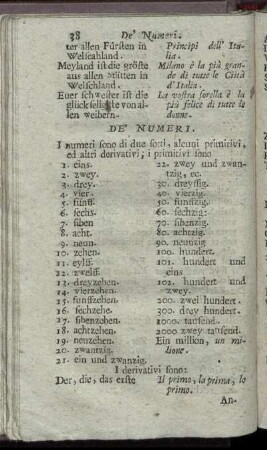 38 De' Numeri.
ter allen Fürsten in
Welschland.
Principi dell' Ita-
lia.
Meyland ist die gröste
aus allen Stätten in
Welschland.
Milano è la più gran-
de di tutte le Città
d'Italia.
Euer schwester ist die
glückseligste von al-
len weibern.
La vostra sorella è la
più felice di tutte le
donne.
DE' NUMERI.
I numeri sono di due sorti, alcuni primitivi,
ed altri derivativi; i primitivi sono
1. eins.
2. zwey.
3. drey.
4. vier.
5. fünff.
6. sechs.
7. siben
8. acht.
9. neun.
10. zehen.
11. eylff.
12. zwelff.
13. dreyzehen.
14. vierzehen.
15. funffzehen.
16. sechzehe.
17. sibenzehen.
18. achtzehen.
19. neuzehen.
20. zwantzig.
21. ein und zwanzig.
22. zwey und zwan-
tzig, &c.
30. dreyssig.
40. vierzig.
50. funffzig.
60. sechzig:
70. sibenzig:
80. achzig.
90. neunzig
100. hundert.
101. hundert und
eins
102. hundert und
zwey.
200. zwei hundert.
300. drey hundert.
1000. tausend.
2000 zwey tausend.
Ein million, un mi-
lione.
I derivativi sono:
Der, die, das erste
Il primo, la prima, lo
primo.
An-